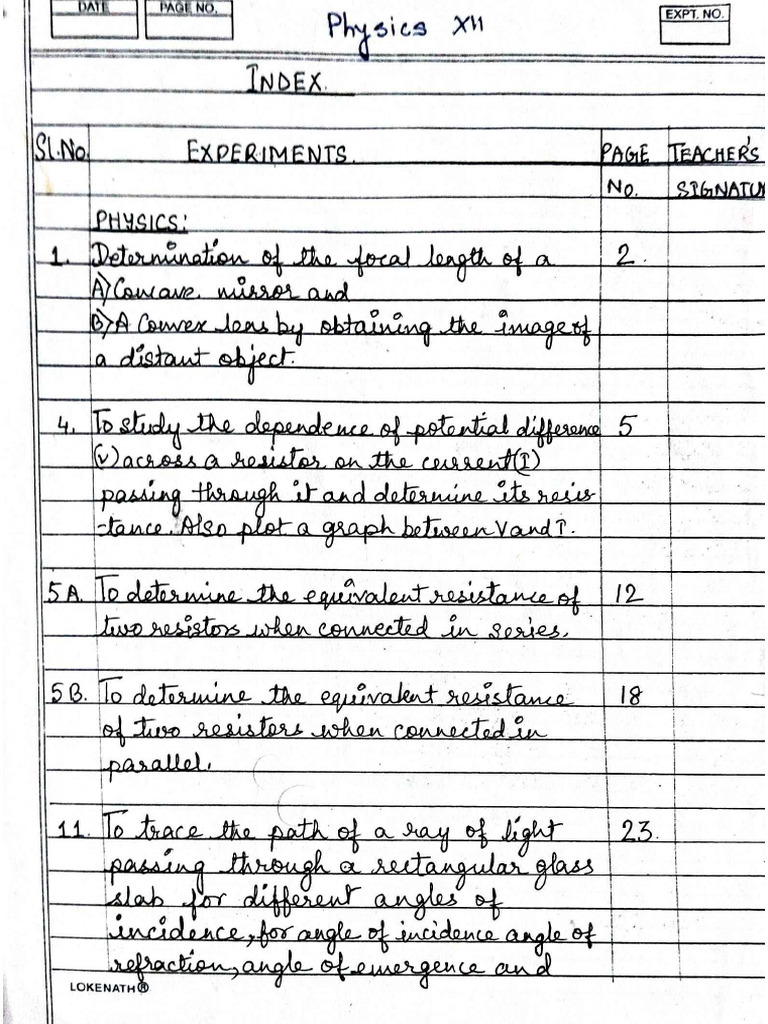 DATE PAGE NO. Physics XII EXPT. NO.
INDEX.
Sl.No. EXPERIMENTS. PAGE TEACHER'S
No. SIGNATU
PHYSICS:
1. Determination of the focal length of a 2.
A) Concave mirror and
B) A Convex lens by obtaining the image of
a distant object.
4. To study the dependence of potential difference 5
(v) across a resistor on the current (I)
passing through it and determine its resis
-tance. Also plot a graph between V and I.
5A. To determine the equivalent resistance of 12
two resistors when connected in series.
5B. To determine the equivalent resistance 18
of two resistors when connected in
parallel.
11. To trace the path of a ray of light 23.
passing through a rectangular glass
slab for different angles of
incidence, for angle of incidence angle of
refraction, angle of emergence and
LOKENATH®